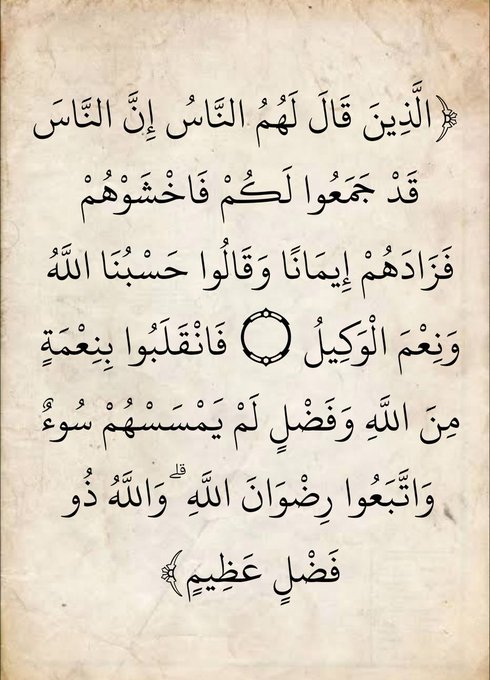 ﴿الَّذِينَ قَالَ لَهُمُ النَّاسُ إِنَّ النَّاسَ
قَدْ جَمَعُوا لَكُمْ فَاخْشَوْهُمْ
فَزَادَهُمْ إِيمَانًا وَقَالُوا حَسْبُنَا اللَّهُ
وَنِعْمَ الْوَكِيلُ ۝ فَانْقَلَبُوا بِنِعْمَةٍ
مِنَ اللَّهِ وَفَضْلٍ لَمْ يَمْسَسْهُمْ سُوءٌ
وَاتَّبَعُوا رِضْوَانَ اللَّهِ ۗ وَاللَّهُ ذُو
فَضْلٍ عَظِيمٍ﴾